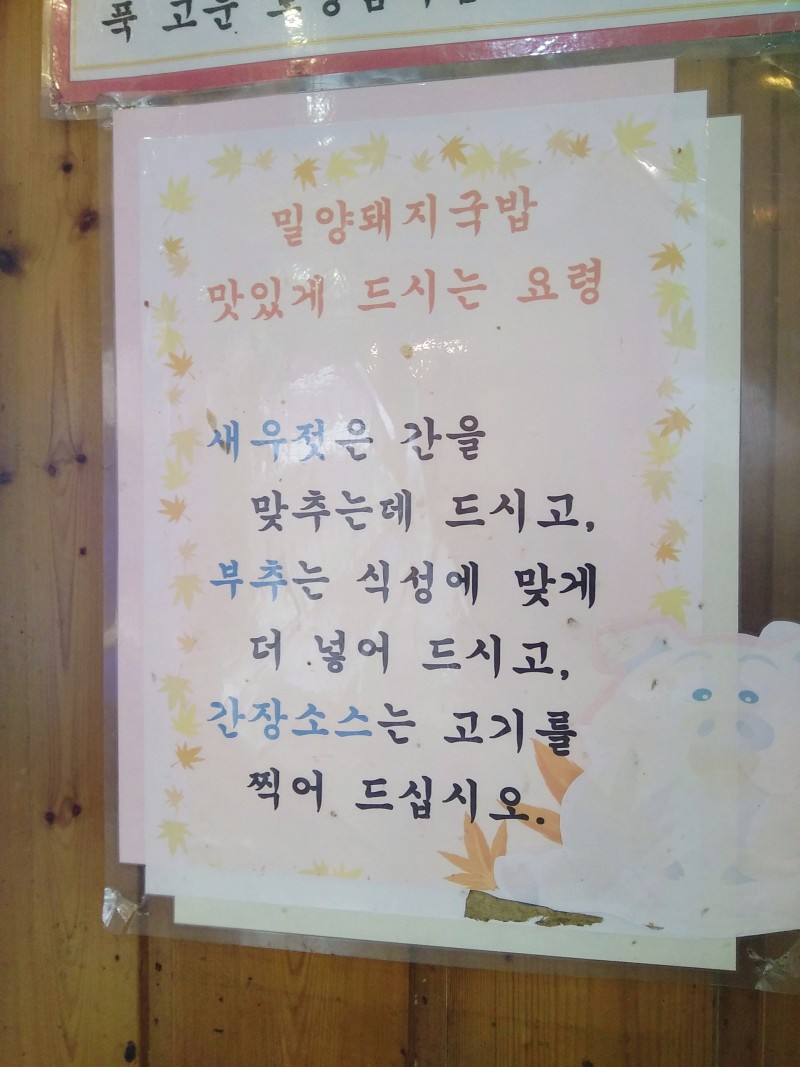 푹 고은
밀양돼지국밥
맛있게 드시는 요령
새우젓은 간을
맞추는데 드시고,
부추는 식성에 맞게
더 넣어 드시고,
간장소스는 고기를
찍어 드십시오.